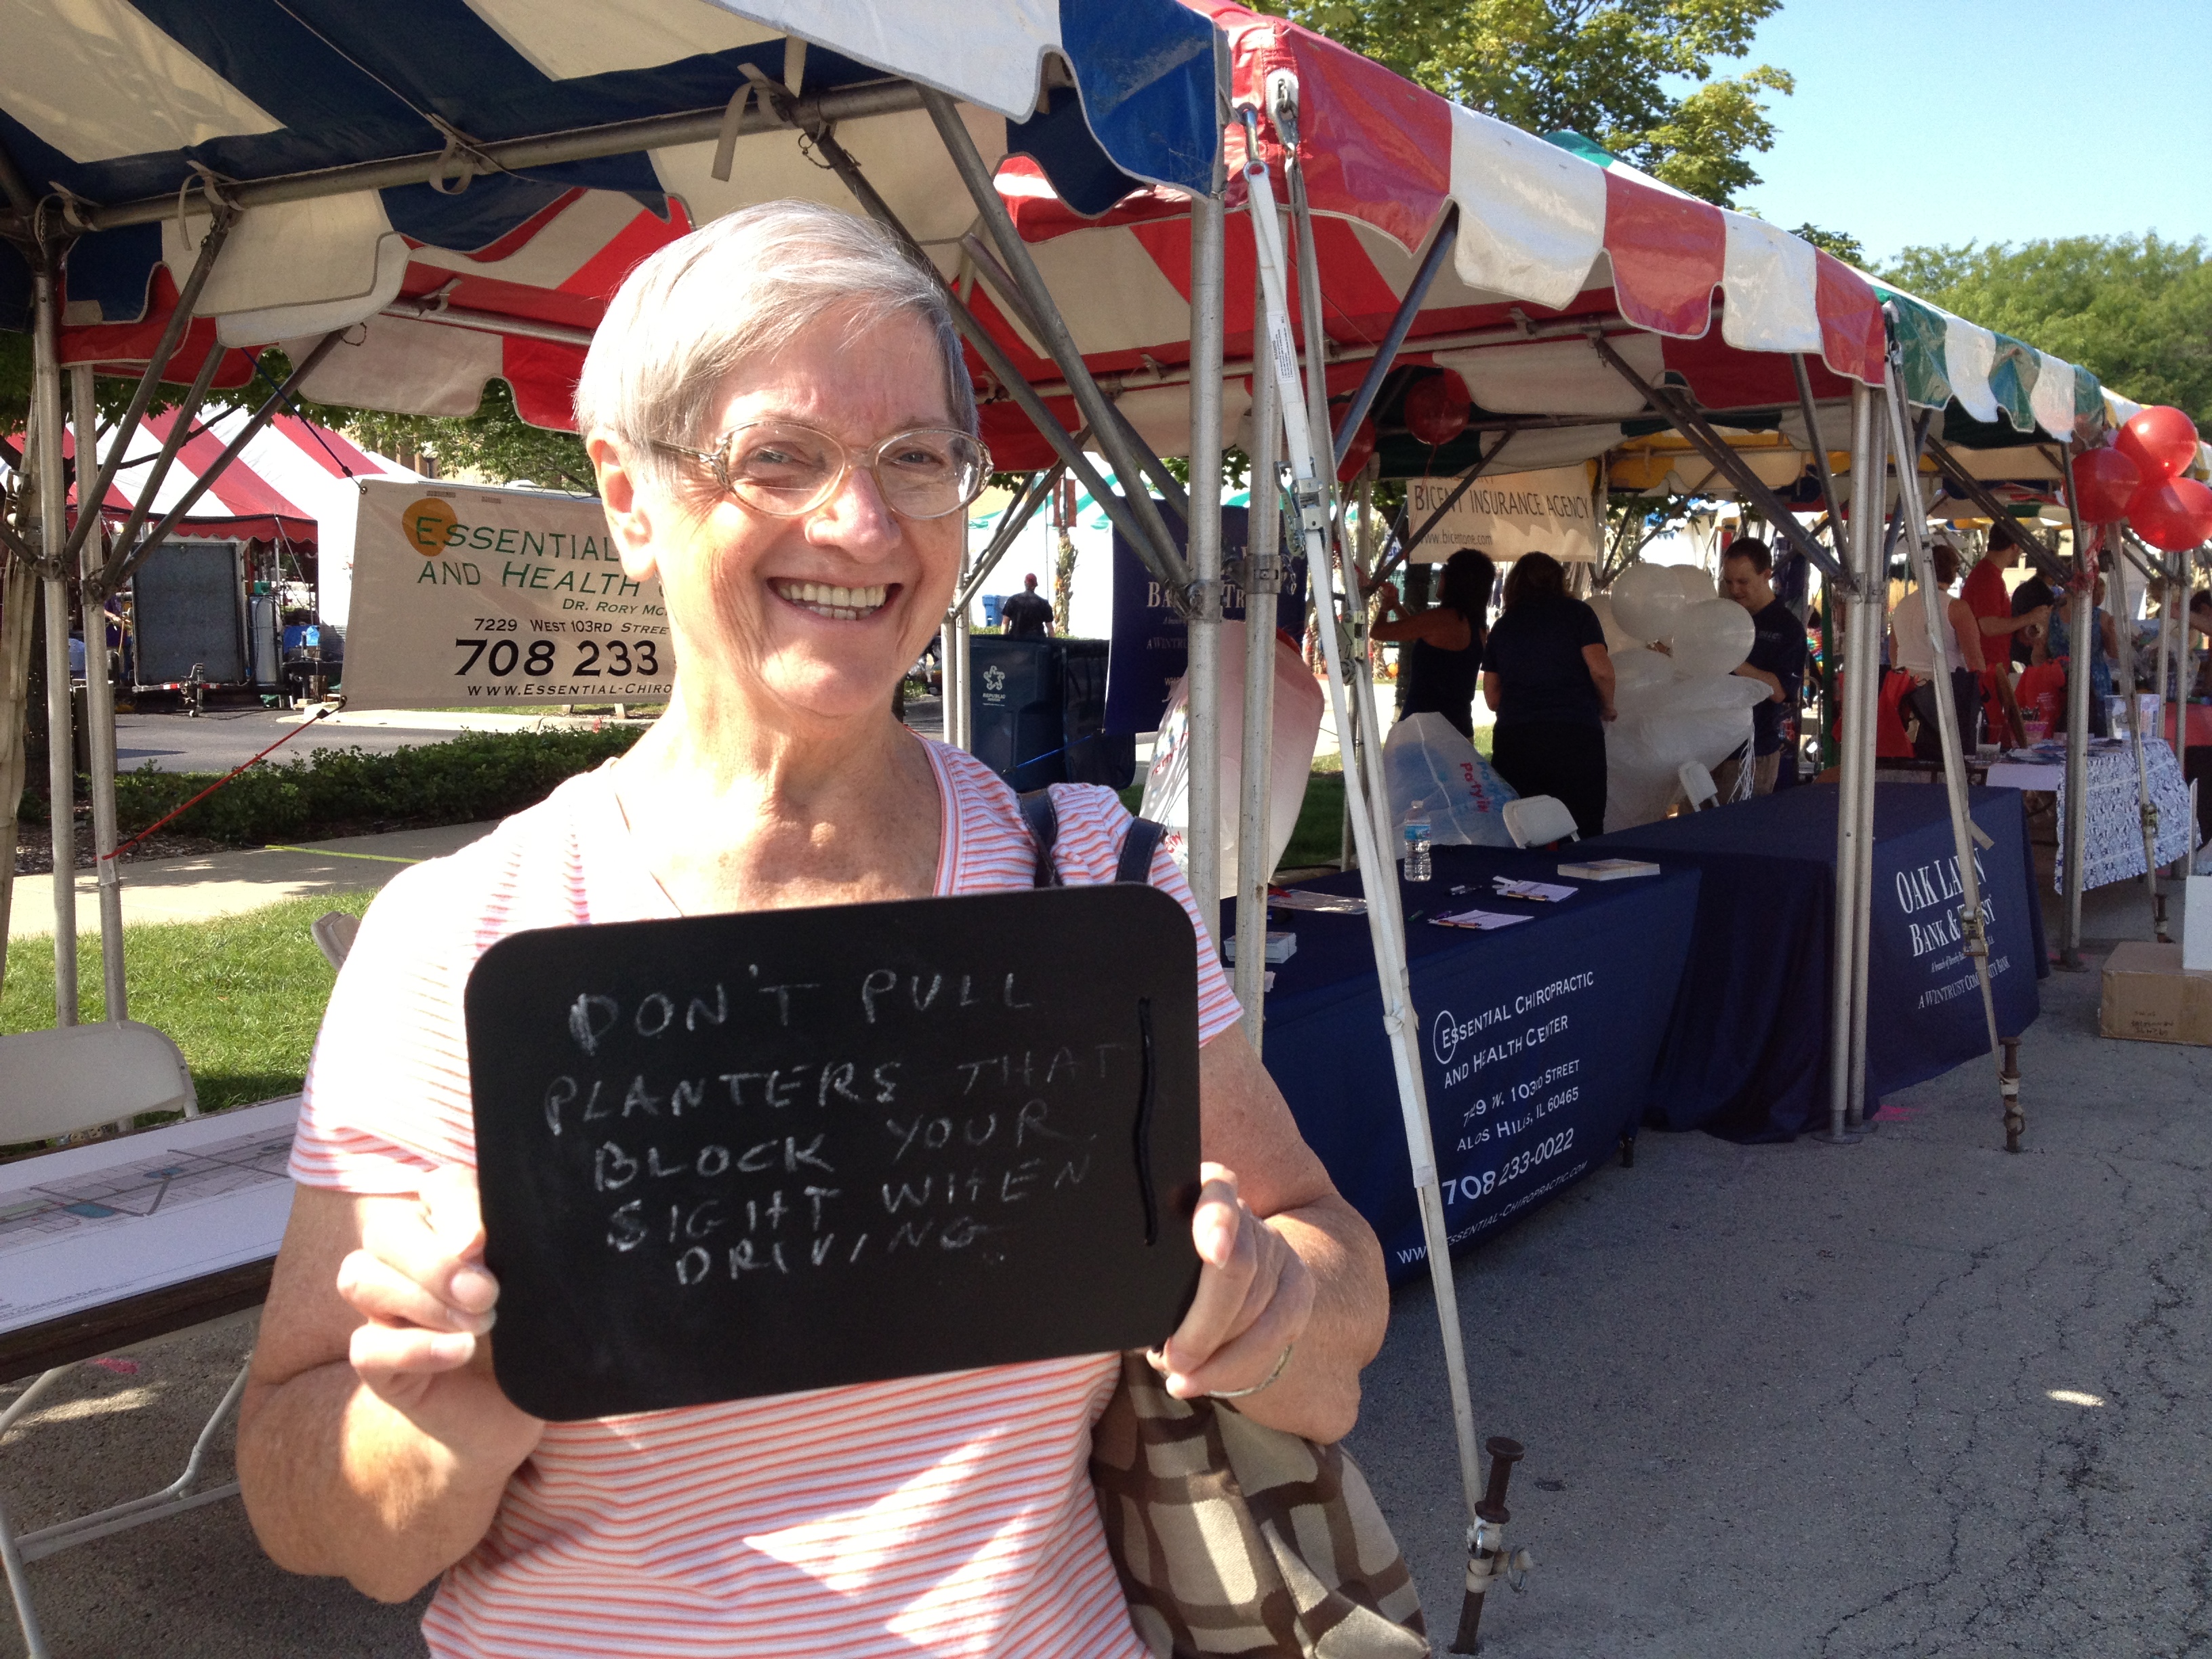 DON'T PULL
PLANTERS THAT
BLOCK YOUR
SIGHT WHEN
DRIVING
ESSENTIAL
AND HEALTH
DR. RORY
7229 WEST 103RD STREET
708 233
WWW.ESSENTIAL-CHIRO
BICENT INSURANCE AGENCY
www.bicentone.com
REPUBLIC
Party
ESSENTIAL CHIROPRACTIC
AND HEALTH CENTER
103RD STREET
HILLS, IL 60465
708 233-0022
ESSENTIAL-CHIROPRACTIC.COM
OAK LAWN
BANK & TRUST
A WINTRUST COMMUNITY BANK